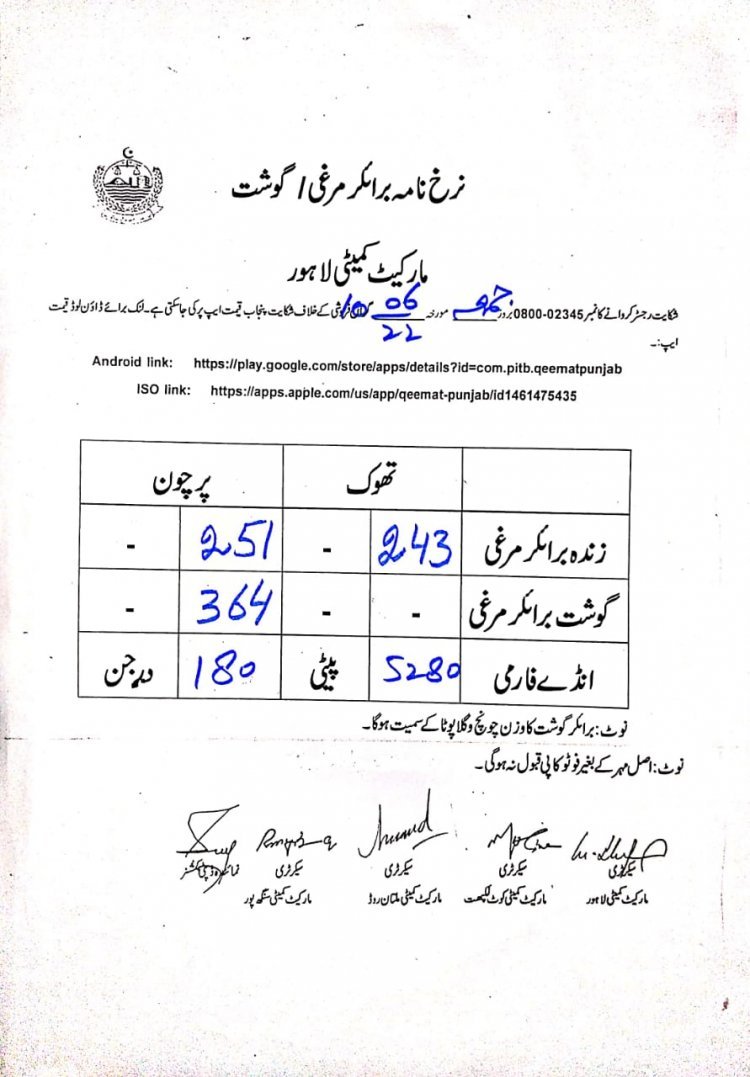 نرخ نامہ برائلر مرغی / گوشت
مارکیٹ کمیٹی لاہور
شکایت رجسٹر کروانے کا نمبر 02345-0800 بروز جمعہ مورخہ 10 06 22 گراں فروشی کے خلاف شکایت پنجاب قیمت ایپ پر کی جا سکتی ہے۔ لنک برائے ڈاؤن لوڈ قیمت
ایپ:۔
Android link: https://play.google.com/store/apps/details?id=com.pitb.qeematpunjab
ISO link: https://apps.apple.com/us/app/qeemat-punjab/id1461475435
تھوک پرچون
زندہ برائلر مرغی 243 - 251 -
گوشت برائلر مرغی - - 364 -
انڈے فارمی 5280 پیٹی 180 درجن
نوٹ: برائلر گوشت کا وزن چونچ و گلا پوٹا کے سمیت ہوگا۔
نوٹ: اصل مہر کے بغیر فوٹو کاپی قبول نہ ہوگی۔
سیکرٹری سیکرٹری سیکرٹری سیکرٹری نمائندہ ڈپٹی کمشنر
مارکیٹ کمیٹی لاہور مارکیٹ کمیٹی کوٹ لکھپت مارکیٹ کمیٹی ملتان روڈ مارکیٹ کمیٹی سنگھ پور